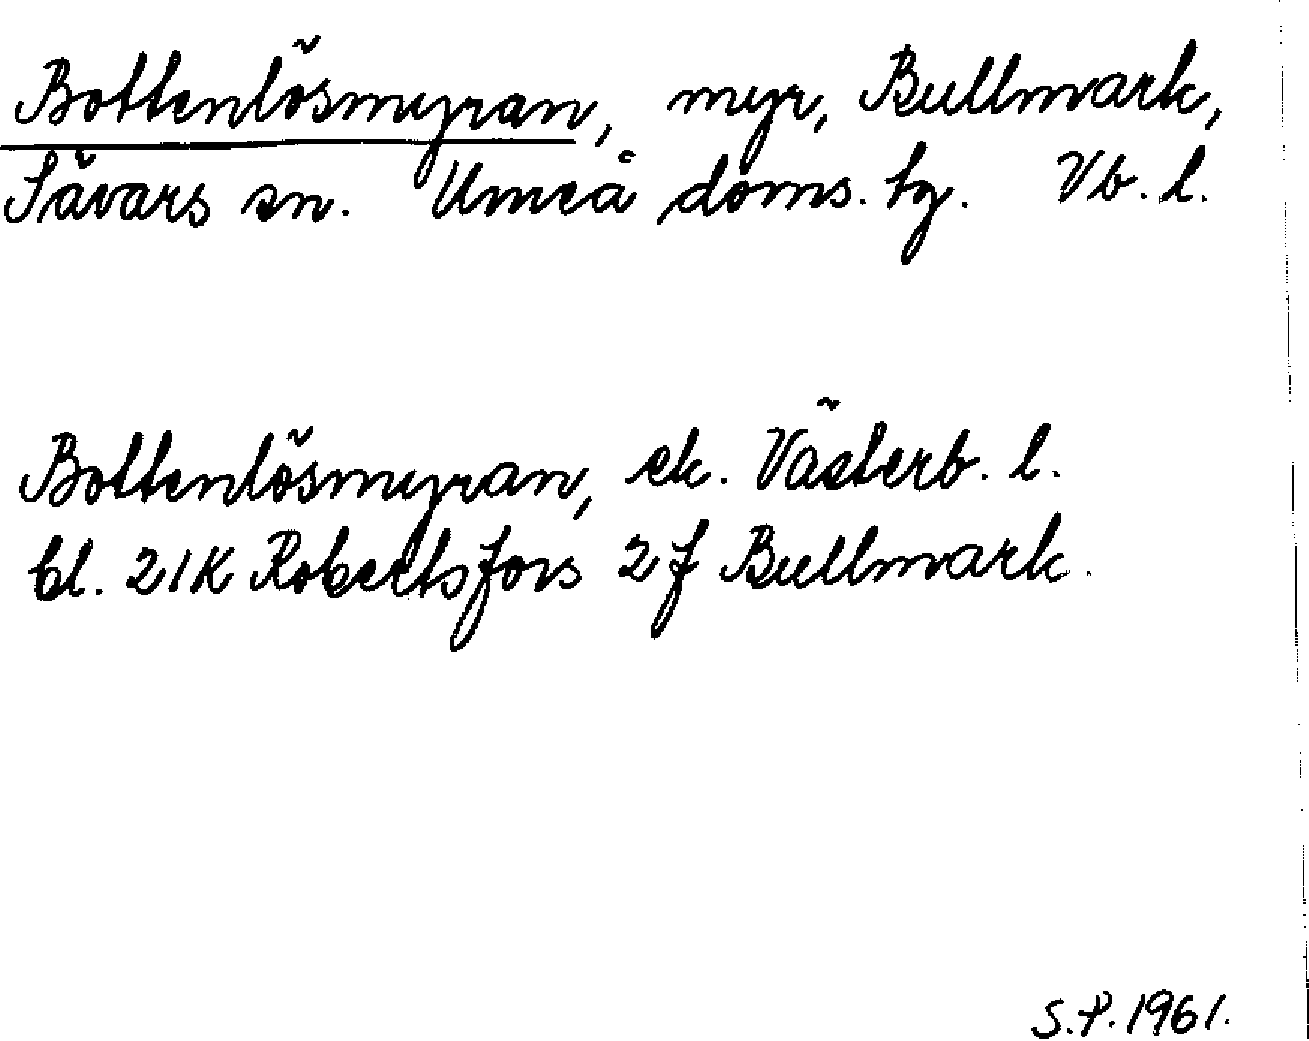 Bottenlösmyran, myr, Bullmark,
Sävars sn. Umeå doms. tg. Vb. l.
Bottenlösmyran, ek. Västerb. l.
bl. 21K Robertsfors 2f Bullmark.
S.P. 1961.